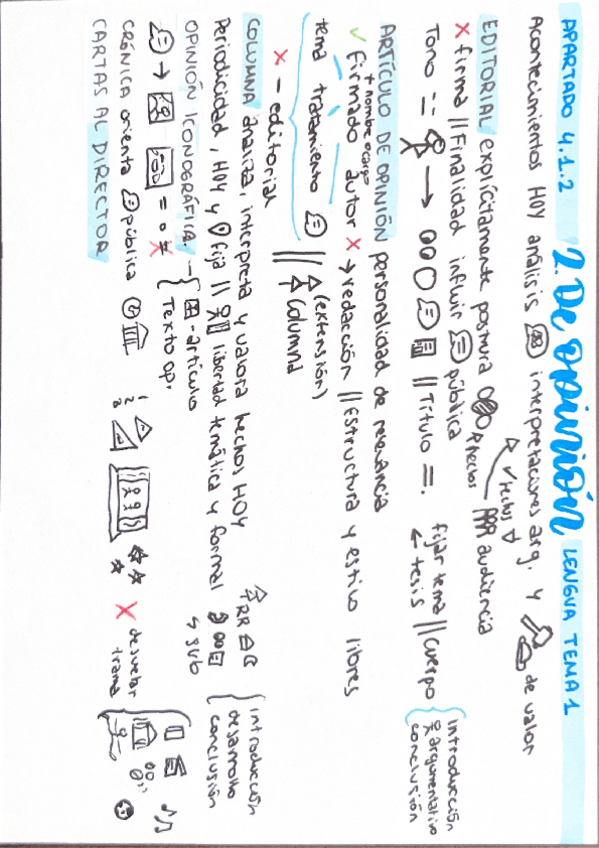 APARTADO 4.1.2 2. De opinión LENGUA TEMA 1
Acontecimientos HOY análisis interpretaciones arg. y de valor
✓ textos
EDITORIAL explícitamente postura audiencia
X firma || Finalidad influir pública
Tono → || Título =. fijar tema || cuerpo
← tesis
introducción
argumentativo
conclusión
ARTÍCULO DE OPINIÓN personalidad de relevancia
+ nombre o cargo
✓ Firmado autor X → redacción || Estructura y estilo libres
tema tratamiento || (extensión)
X - editorial columna
COLUMNA analiza, interpreta y valora hechos HOY
Periodicidad, HOY y fija || libertad temática y formal
↳ sub
introducción
desarrollo
conclusión
OPINIÓN ICONOGRÁFICA. - artículo
Texto op.
CRÓNICA orienta pública
1
2
3
X desvelar
trama
CARTAS AL DIRECTOR